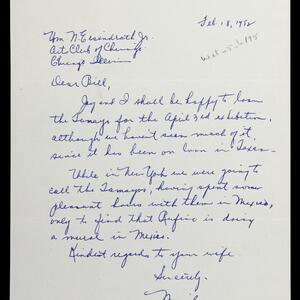 Feb. 18, 1952
Wm. N. Eisendrath Jr.
Art Club of Chicago
Chicago Illinois
Dear Bill,
Jay and I shall be happy to loan
the Tamayo for the April 3rd exhibition,
although we haven't seen much of it,
since it has been on loan in
While in New York we were going to
call the Tamayos, having spent some
pleasant hours with them in Mexico,
only to find that Rufino is doing
a mural in Mexico.
Kindest regards to your wife.
Sincerely,